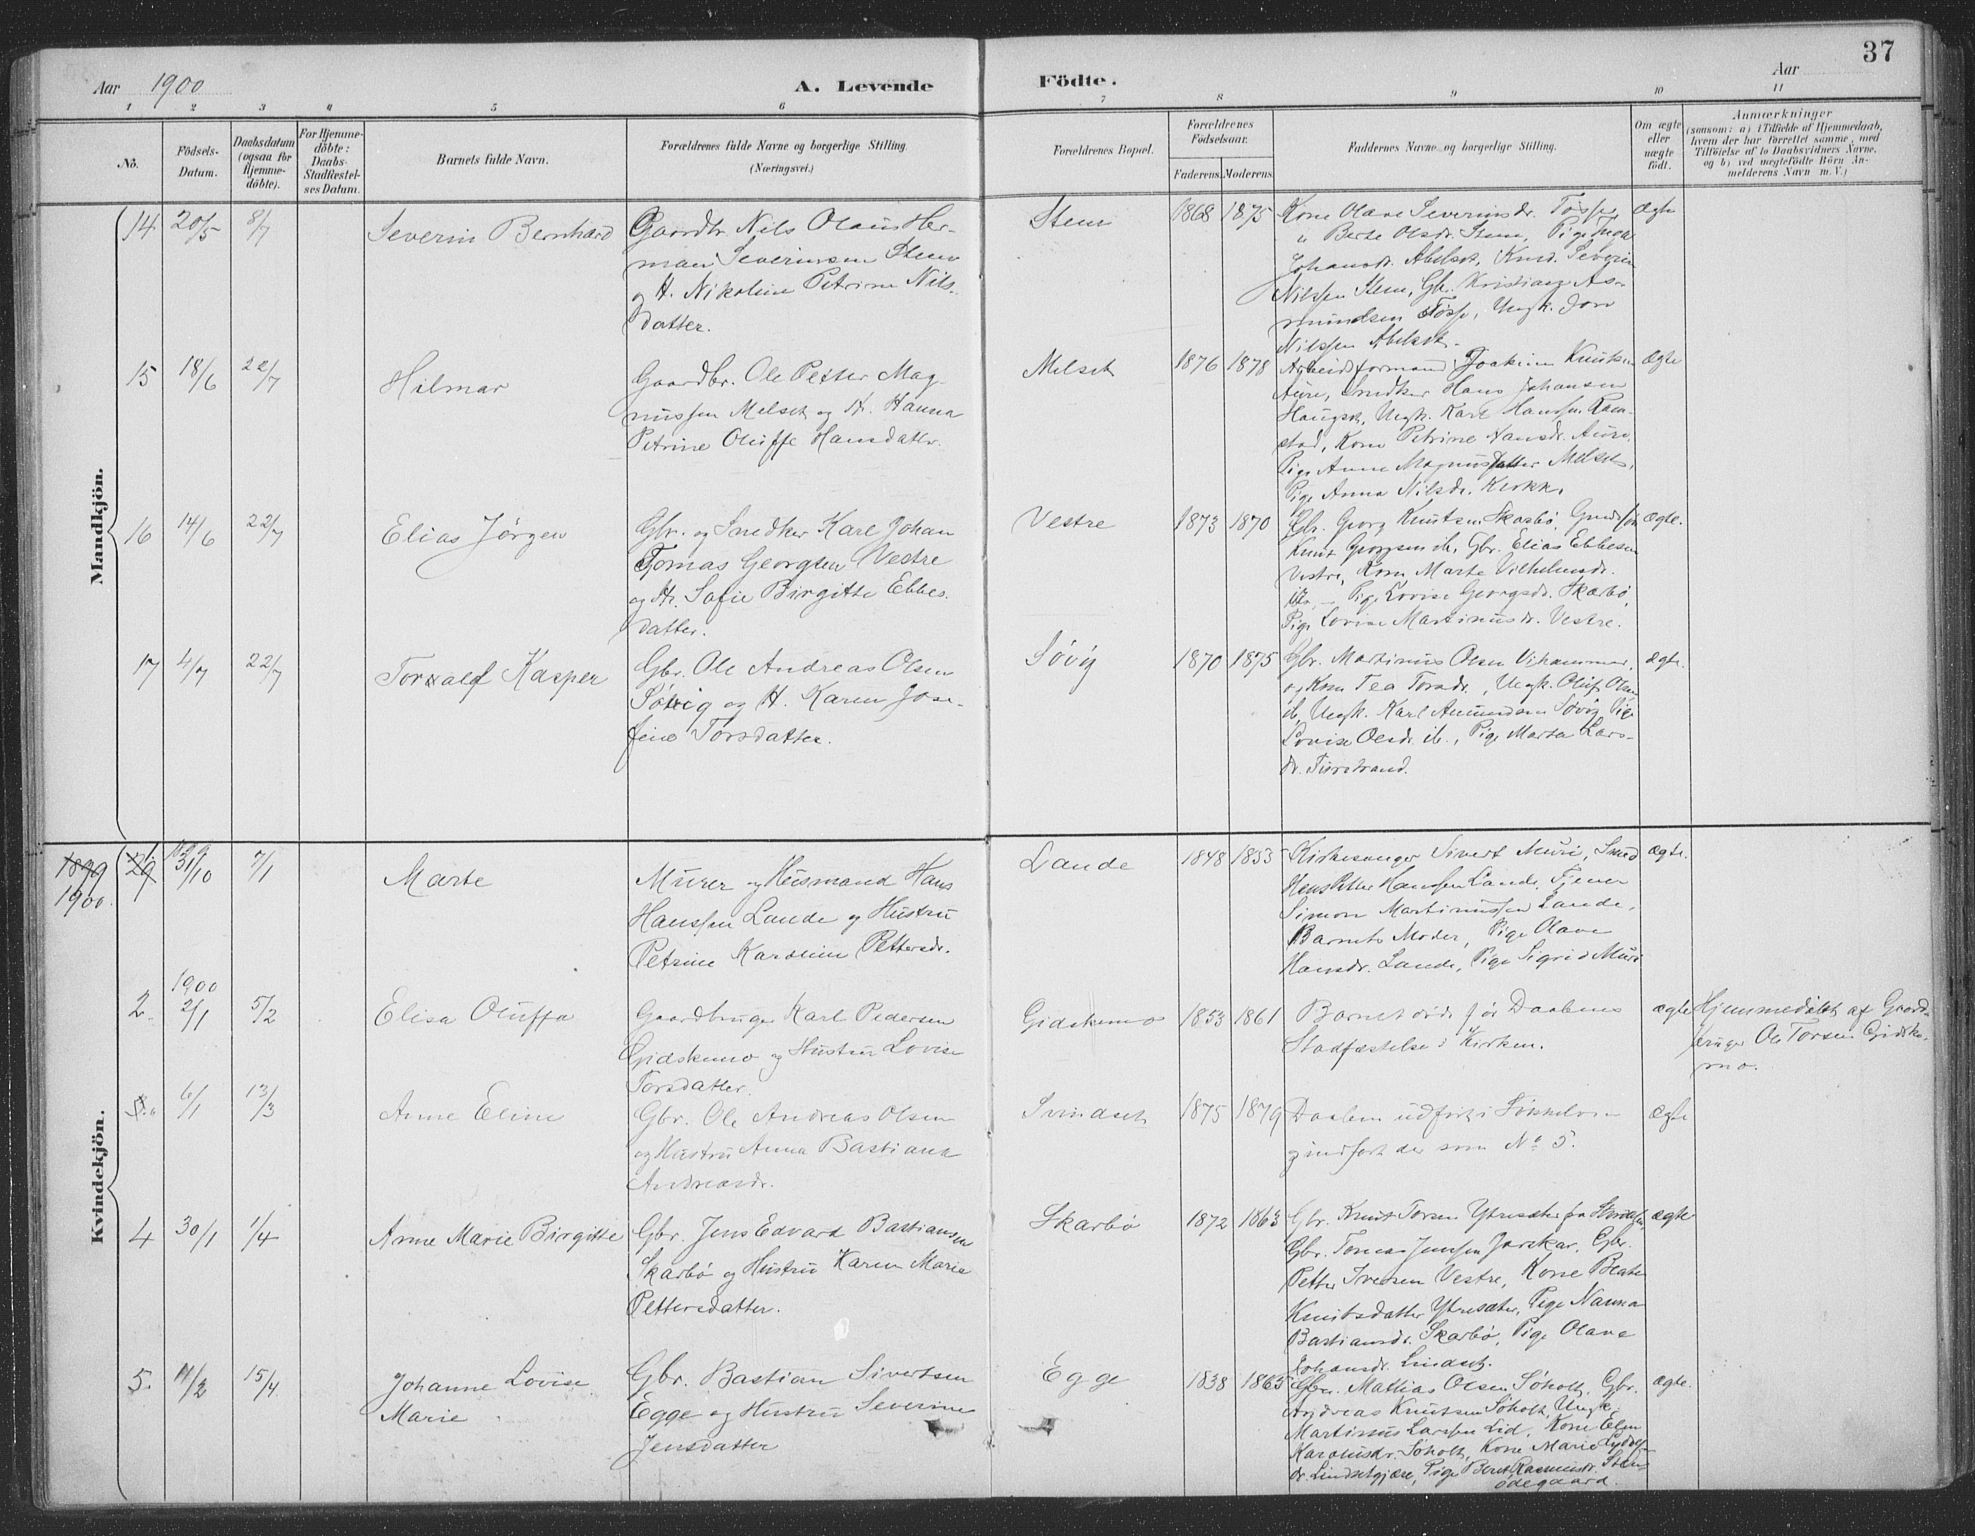 37
Aar 1900
A. Levende Födte.
Aar
1 2 3 4 5 6 7 8 9 10 11
No.
Födsels-Datum.
Daabsdatum (ogsaa for Hjemme-döbte).
For Hjemme-döbte: Daabs-Stadfæstel-ses Datum.
Barnets fulde Navn.
Forældrenes fulde Navne og borgerlige Stilling.
(Næringsvei.)
Forældrenes Bopæl.
Forældrenes Födselsaar.
Faderens. Moderens.
Faddernes Navne og borgerlige Stilling.
Om ægte eller uægte födt.
Anmærkninger
(saasom: a) i Tilfælde af Hjemmedaab,
hvem der har forrettet samme, med
Tilföielse af to Daabsvidners Navne.
og b) ved uægtefödte Börn An-
melderens Navn m. V.)
Mandkjön.
14 20/5 8/7 Severin Bernhard
Gaardbr. Nils Olaus Her-
man Severinsen Stene
og H. Nikoline Petrine Nils-
datter.
Stene 1868 1875
Kone Olave Severinsdr. Tøsse,
" Berte Olsdr. Stene, Pige
Johansdr. Abelset, Knud Severin
Nilssen Stene, Gbr. Kristian As-
mundsen Tøsse, Ungk.
Nilssen Abelset.
ægte
15 18/6 22/7 Hilmar
Gaardbr. Ole Petter Mag-
nussen Melset og H. Hanna
Petrine Oluffe Hansdatter.
Melset 1876 1878
Arbeidsformand Joakim Knutsen
Aure, Snedker Hans Johansen
Haugset, Ungk. Karl Hanssen Ram-
stad, Kone Petrine Hansdr. Aure,
Pige Anne Magnusdatter Melset,
Pige Anna Nilsdr. Kirkk.
Ægte
16 14/6 22/7 Elias Jørgen
Gbr. og Snedker Karl Johan
Tomas Georgsen Vestre
og H. Sofie Birgitte Ebbes-
datter.
Vestre 1873 1870
Gbr. Georg Knutsen Skarbø,
Knut Georgsen ib., Gbr. Elias Ebbesen
Vestre, Kone Marte Vilhelmsdr.
Pige Lovise Georgsdr. Skarbø,
Pige Lovise Martinusdr. Vestre.
ægte.
17 4/7 22/7 Torvald Kasper
Gbr. Ole Andreas Olsen
Søvig og H. Karen Jose-
fine Torsdatter.
Søvig 1870 1875
Gbr. Martinus Olsen Vihammer,
og Kone Tea Torsdr., Ungk. Oluf Olsen
ib., Ungk. Karl Amundsen Søvig, Pige
Lovise Olsdr. ib., Pige Marta Lars-
dr. Turstrand.
ægte.
Kvindekjön.
1899
1900.
29 1
1899
31/10 7/1 Marte
Murer og Husmand Hans
Hanssen Lande og Hustru
Petrine Karoline Pettersdr.
Lande 1848 1855
Kirkesanger Sivert Muri, Smed
Hans Petter Hanssen Lande, Tjener
Simon Martinussen Lande,
Barnets Moder, Pige Olave
Hansdr. Lande, Pige Sigrid Muri
ægte.
1900
2. 2/1 5/2 Elisa Oluffa
Gaardbruger Karl Pedersen
Gidskemo og Hustru Lovise
Torsdatter.
Gidskemo 1853 1861
Barnet døde før Daabens
Stadfæstelse i Kirken.
ægte
Hjemmedøbt af Gaard-
bruger Ole Torsen Gidske-
mo.
3. 6/1 13/3 Anne Eline
Gbr. Ole Andreas Olsen
og Hustru Anna Bastiane
Andreasdr.
Svindset 1875 1879
Daaben udført i Søkkelven
og indført der som No 5.
Ægte
4 30/1 1/4 Anne Marie Birgitte
Gbr. Jens Edvard Bastiansen
Skarbø og Hustru Karen Marie
Pettersdatter.
Skarbø 1872 1863
Gbr. Knut Torsen Ytresæter fra Stordalen,
Gbr. Tomas Jenssen Jarskar, Gbr.
Petter Iversen Vestre, Kone Beate
Knutsdatter Ytresæter, Pige Nanna
Bastiansdr. Skarbø, Pige Olave
Johansdr. Lindset.
ægte
5. 11/2 15/4 Johanne Lovise
Marie
Gbr. Bastian Sivertsen
Egge og Hustru Severine
Jensdatter
Egge 1838 1865
Gbr. Mathias Olsen Søholt, Gbr.
Andreas Knutsen Søholt, Ungk.
Martinus Larssen Lid, Kone Elen
Karolusdr. Søholt, Kone Marie
dr. Lindsetgjære, Pige Berit Rasmusdr. Sten-
ødegaard.
ægte.